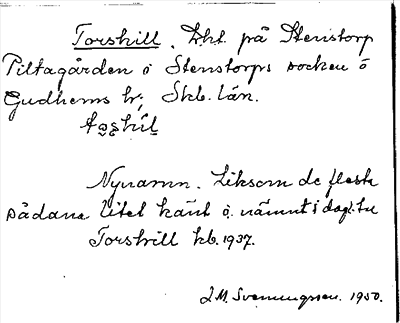 Torskull. Lht. på Stenstorp
Piltagården i Stenstorps socken i
Gudhems hr; Skb. län.
Nynamn. Liksom de flesta
sådana litet känt o. nämnt i dagl. tal
Torskull kb. 1937.
J. M. Svenungsson. 1950.